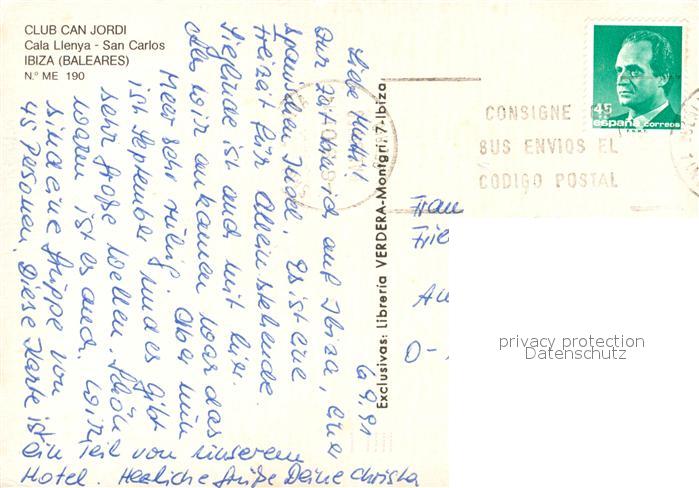 CLUB CAN JORDI
Cala Llenya - San Carlos
IBIZA (BALEARES)
N.º ME 190
6.9.91
Liebe Mutti!
Zur Zeit bin ich auf Ibiza, eine
spanischen Insel. Es ist eine
Freizeit für Alleinstehende.
Sieglinde ist auch mit hier.
Als wir ankamen war das
Meer sehr ruhig. Aber nun
ist September und es gibt
sehr große Wellen. Schön
warm ist es auch. Wir
sind eine Gruppe von
45 Pesonen. Diese Karte ist
ein Teil von unserem
Hotel. Herzliche Grüße Deine Christa
Exclusivas: Librería VERDERA-Montgrí, 7-Ibiza
CONSIGNE
SUS ENVIOS EL
CODIGO POSTAL
45
españa correos
Frau
Frie
Au
D-
privacy protection
Datenschutz